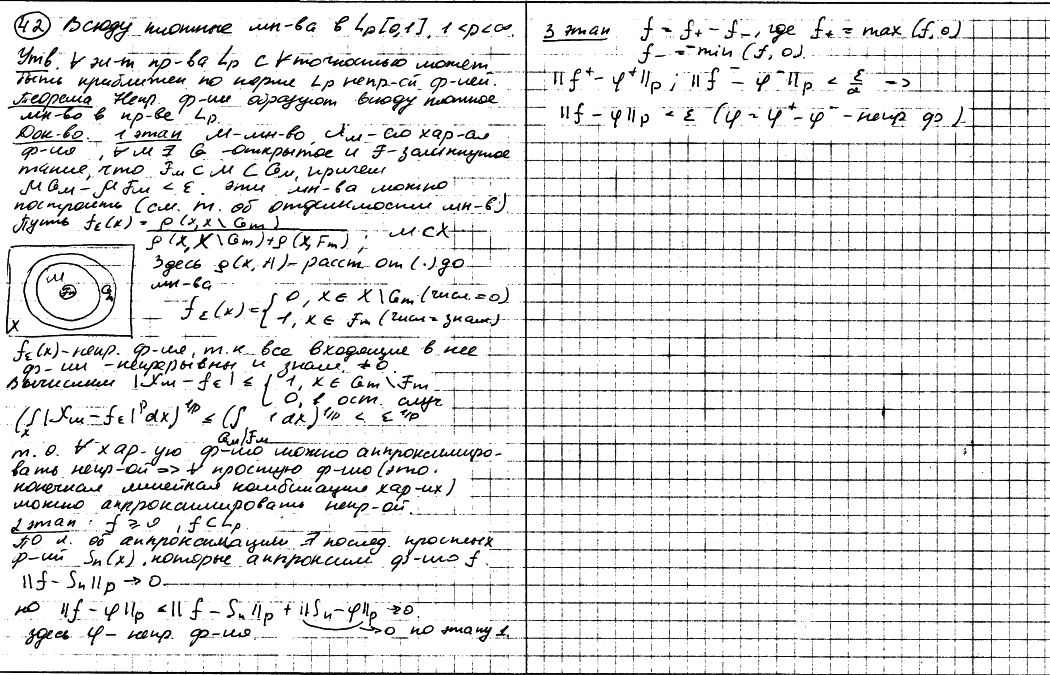 42 Всюду плотные мн-ва в Lp[0,1], 1<p<∞.
Утв. ∀ эл-т пр-ва Lp с ∀ точностью может
быть приближен по норме Lp непр-ой ф-ией.
Теорема Непр. ф-ии образуют всюду плотное
мн-во в пр-ве Lp.
Док-во. 1 этап M-мн-во, χм-его хар-ая
ф-ия, ∀ M ∃ G -открытое и F-замкнутое
такие, что Fм ⊂ M ⊂ Gм, причем
μGм - μFм < ε. Эти мн-ва можно
построить (см. т. об отделимости мн-в)
Пусть fε(x) = ρ(x, X\Gm) / (ρ(x, X\Gm)+ρ(x, Fm)) ; M⊂X
Здесь ρ(x, A) - расст от (·) до
мн-ва
M Fm Gm X
fε(x) = { 0, x∈ X\Gm (числ=0)
1, x∈ Fm (числ=знам)
fε(x)-непр. ф-ия, т.к все входящие в нее
ф-ии -непрерывны и знам. ≠0.
Вычислим |χм - fε| ≤ { 1, x∈ Gm\Fm
0, в ост. случ
(∫X |χм - fε|^p dx)^1/p ≤ (∫Gм\Fм 1 dx)^1/p < ε^1/p
т.о. ∀ хар-ую ф-ию можно аппроксимиро-
вать непр-ой => ∀ простую ф-ию (это
конечная линейная комбинация хар-их)
можно аппроксимировать непр-ой.
2 этап: f ≥ 0, f ⊂ Lp
По л. об аппроксимации ∃ послед. простых
ф-ий Sn(x), которые аппроксим ф-ию f
||f - Sn||p → 0
но ||f - φ||p ≤ ||f - Sn||p + ||Sn - φ||p → 0
здесь φ - непр. ф-ия. → 0 по этапу 1.
3 этап f = f+ - f-, где f+ = max (f, 0)
f- = -min (f, 0).
||f+ - φ+||p ; ||f- - φ-||p < ε/2 =>
||f - φ||p < ε (φ = φ+ - φ- - непр ф)